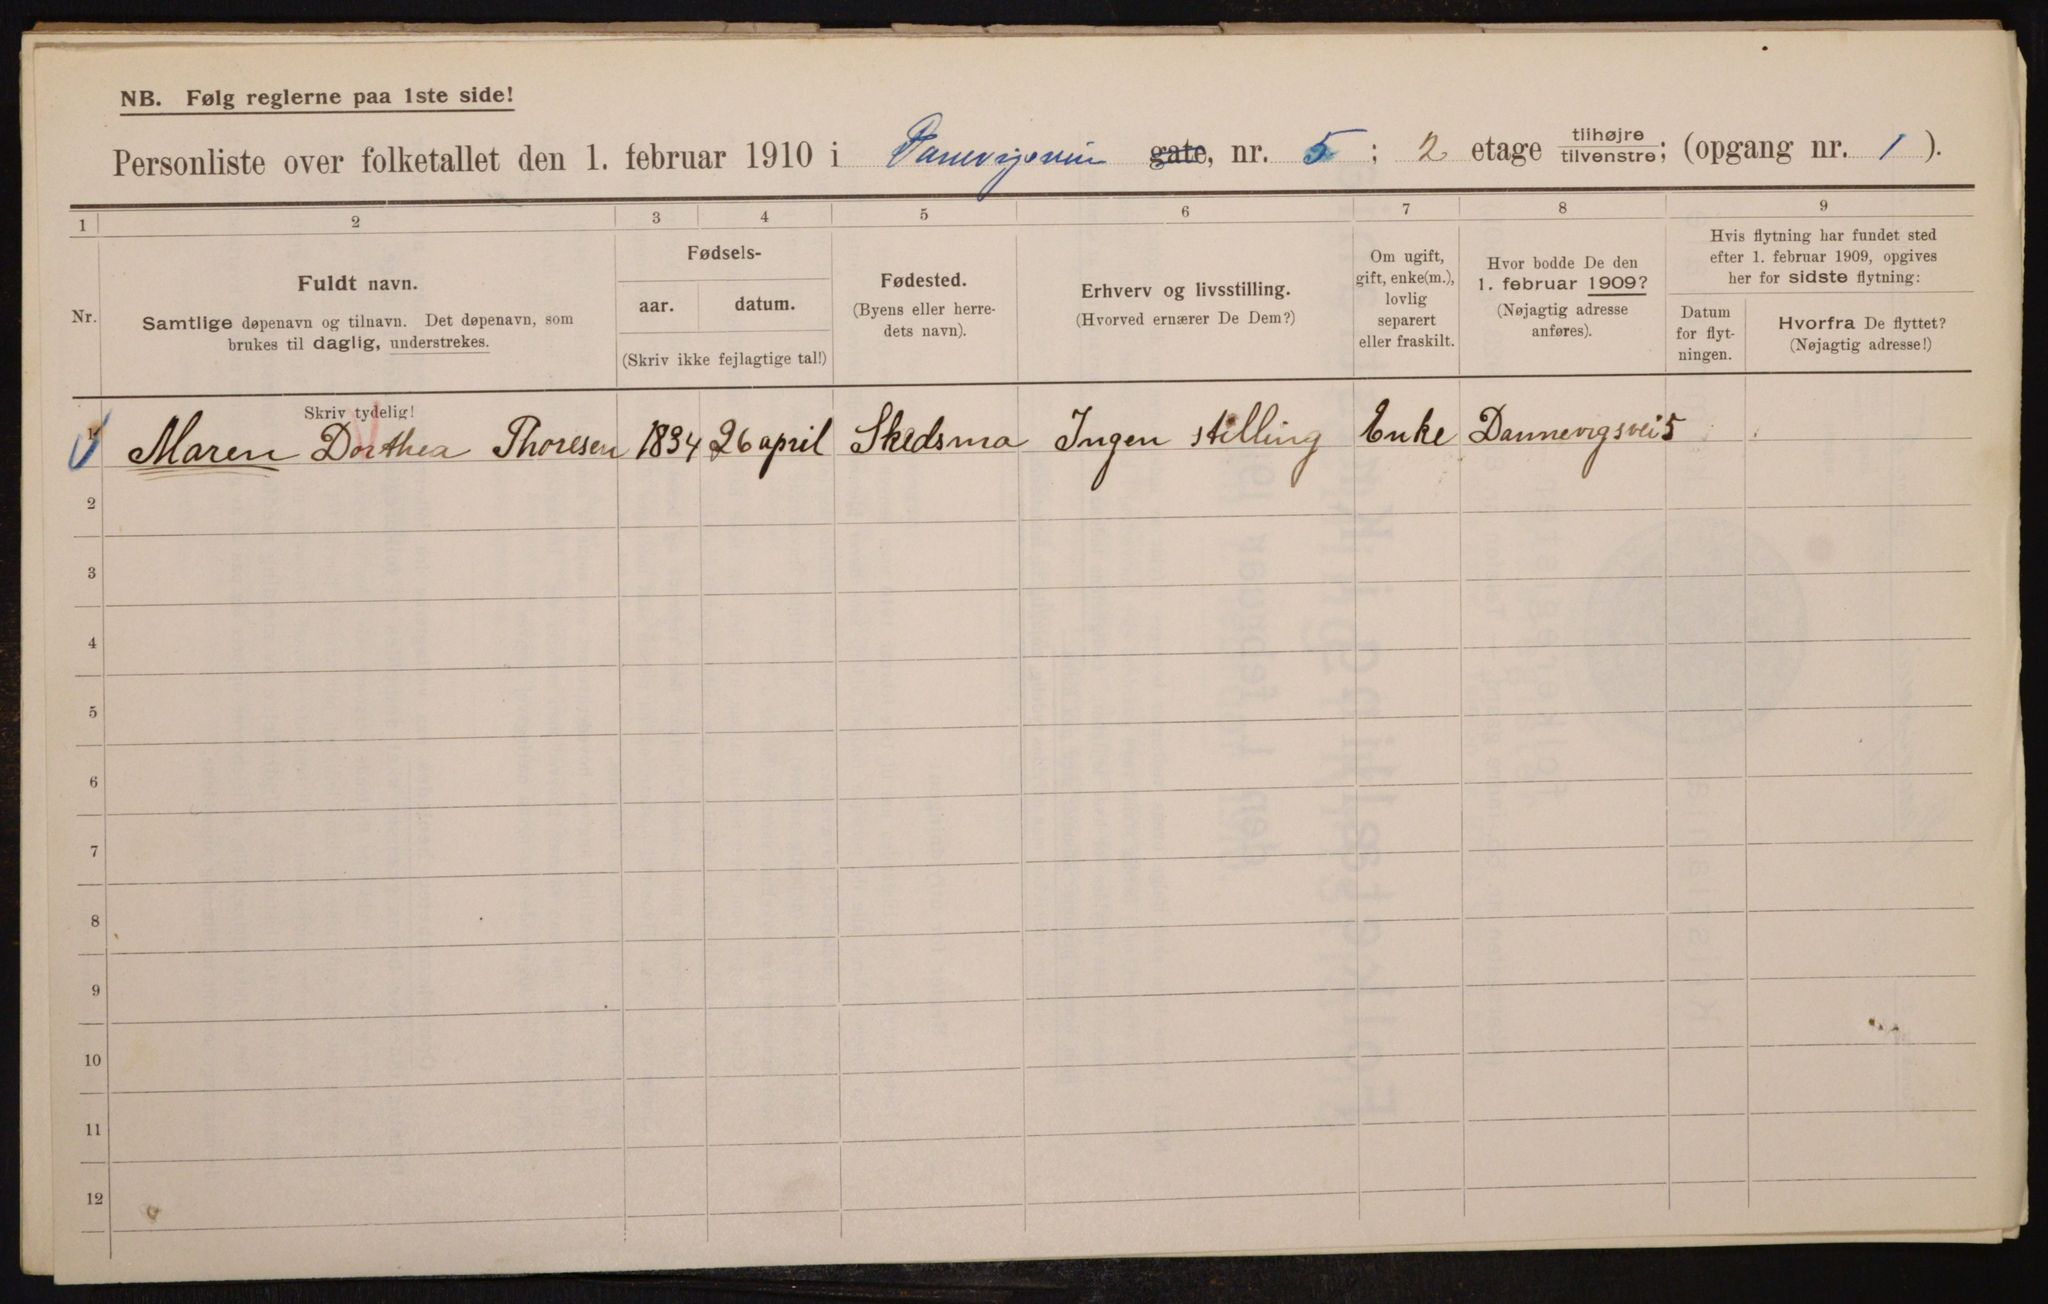 NB. Følg reglerne paa 1ste side!
Personliste over folketallet den 1. februar 1910 i Danevigsveien gate, nr. 5; 2 etage tilhøjre/tilvenstre; (opgang nr. 1).
1 2 3 4 5 6 7 8 9
Nr.
Fuldt navn.
Samtlige døpenavn og tilnavn. Det døpenavn, som
brukes til daglig, understrekes.
Fødsels-
aar. datum.
(Skriv ikke fejlagtige tal!)
Fødested.
(Byens eller herre-
dets navn).
Erhverv og livsstilling.
(Hvorved ernærer De Dem?)
Om ugift,
gift, enke(m.),
lovlig
separert
eller fraskilt.
Hvor bodde De den
1. februar 1909?
(Nøjagtig adresse
anføres).
Hvis flytning har fundet sted
efter 1. februar 1909, opgives
her for sidste flytning:
Datum
for flyt-
ningen.
Hvorfra De flyttet?
(Nøjagtig adresse!)
Skriv tydelig!
1 Maren Dorthea Thoresen 1834 26 april Skedsmo Ingen stilling Enke Dannevigsvei 5
2
3
4
5
6
7
8
9
10
11
12